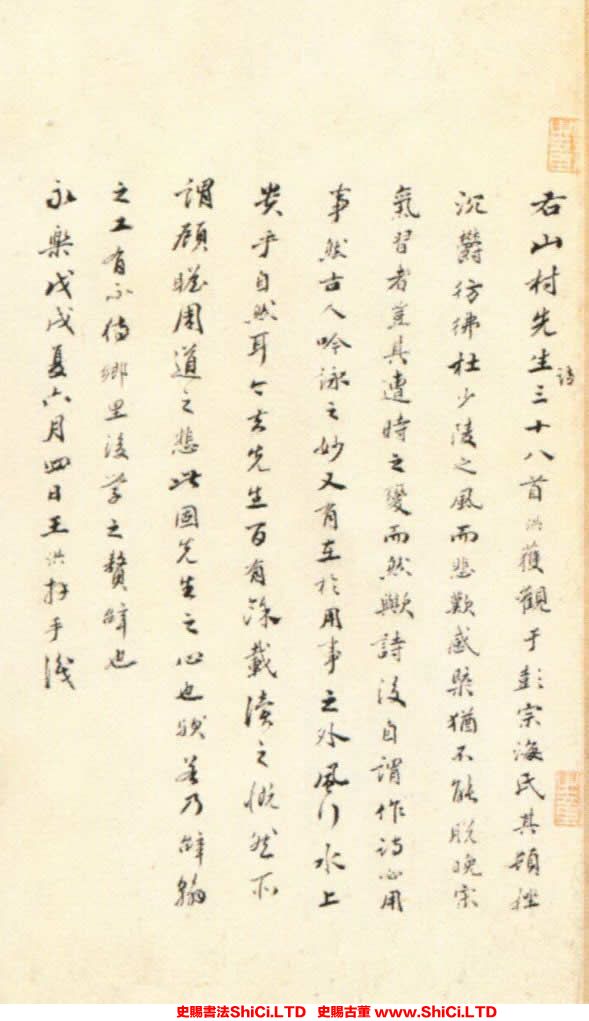 右山村先生詩三十八首洪獲觀于彭宗海氏其頓挫
沉鬱彷彿杜少陵之風而悲歎感槩猶不能脫晚宋
氣習者豈其遭時之變而然歟詩後自謂作詩必用
事然古人吟詠之妙又有在於用事之外風行水上
貴乎自然耳今去先生百有餘載讀之慨然所
謂顧瞻周道之悲此固先生之心也歟若乃辭翰
之工有不待鄉里後學之贅辭也
永樂戊戌夏六月四日王洪拜手識
史賜書法ShiCi.LTD 史賜古董 www.ShiCi.LTD